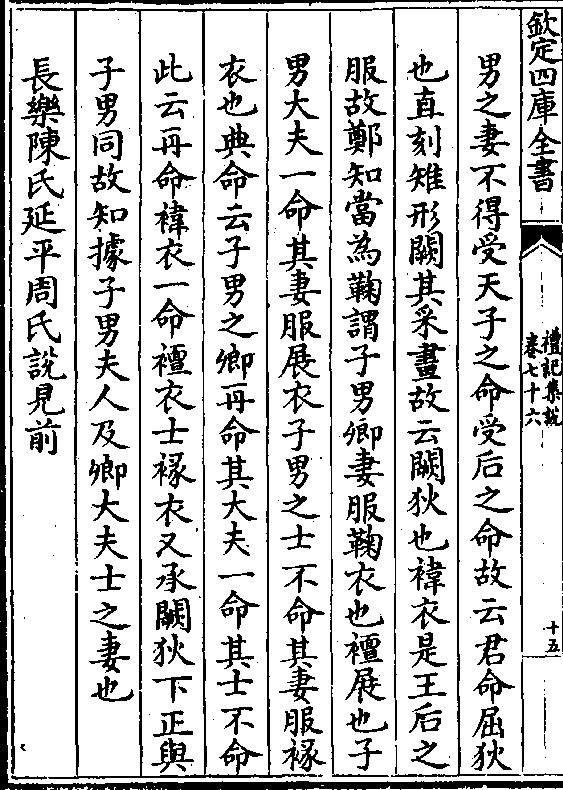 欽定四庫全書
禮記集說
卷七十六
十五
男之妻不得受天子之命受后之命故云君命屈狄
也直刻雉形闕其采畫故云闕狄也褘衣是王后之
服故鄭知當為鞠謂子男卿妻服鞠衣也襢展也子
男大夫一命其妻服展衣子男之士不命其妻服褖
衣也典命云子男之卿再命其大夫一命其士不命
此云再命褘衣一命襢衣士褖衣又承闕狄下正與
子男同故知據子男夫人及卿大夫士之妻也
長樂陳氏延平周氏說見前